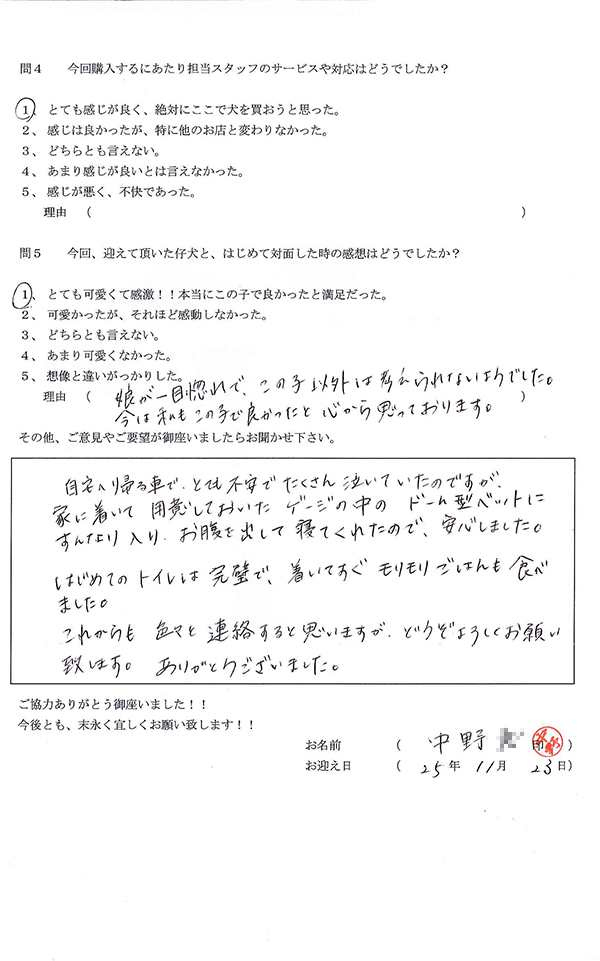 問4　今回購入するにあたり担当スタッフのサービスや対応はどうでしたか？
1、とても感じが良く、絶対にここで犬を買おうと思った。
2、感じは良かったが、特に他のお店と変わりなかった。
3、どちらとも言えない。
4、あまり感じが良いとは言えなかった。
5、感じが悪く、不快であった。
理由　（　　　）
問5　今回、迎えて頂いた仔犬と、はじめて対面した時の感想はどうでしたか？
1、とても可愛くて感激！！本当にこの子で良かったと満足だった。
2、可愛かったが、それほど感動しなかった。
3、どちらとも言えない。
4、あまり可愛くなかった。
5、想像と違いがっかりした。
理由　（　娘が一目惚れで、この子以外は考えられないほどでした。
今は私もこの子で良かったと心から思っております。
その他、ご意見やご要望が御座いましたらお聞かせ下さい。
自宅へ帰る車で、とても不安でたくさん泣いていたのですが、
家に着いて用意しておいたゲージの中のドーム型ベットに
すんなり入り、お腹を出して寝てくれたので、安心しました。
はじめてのトイレは完璧で、着いてすぐモリモリごはんも食べ
ました。
これからも色々と連絡すると思いますが、どうぞよろしくお願い
致します。ありがとうございました。
ご協力ありがとう御座いました！！
今後とも、末永く宜しくお願い致します！！
お名前　（　中野　印　）
お迎え日　（　25年11月23日）